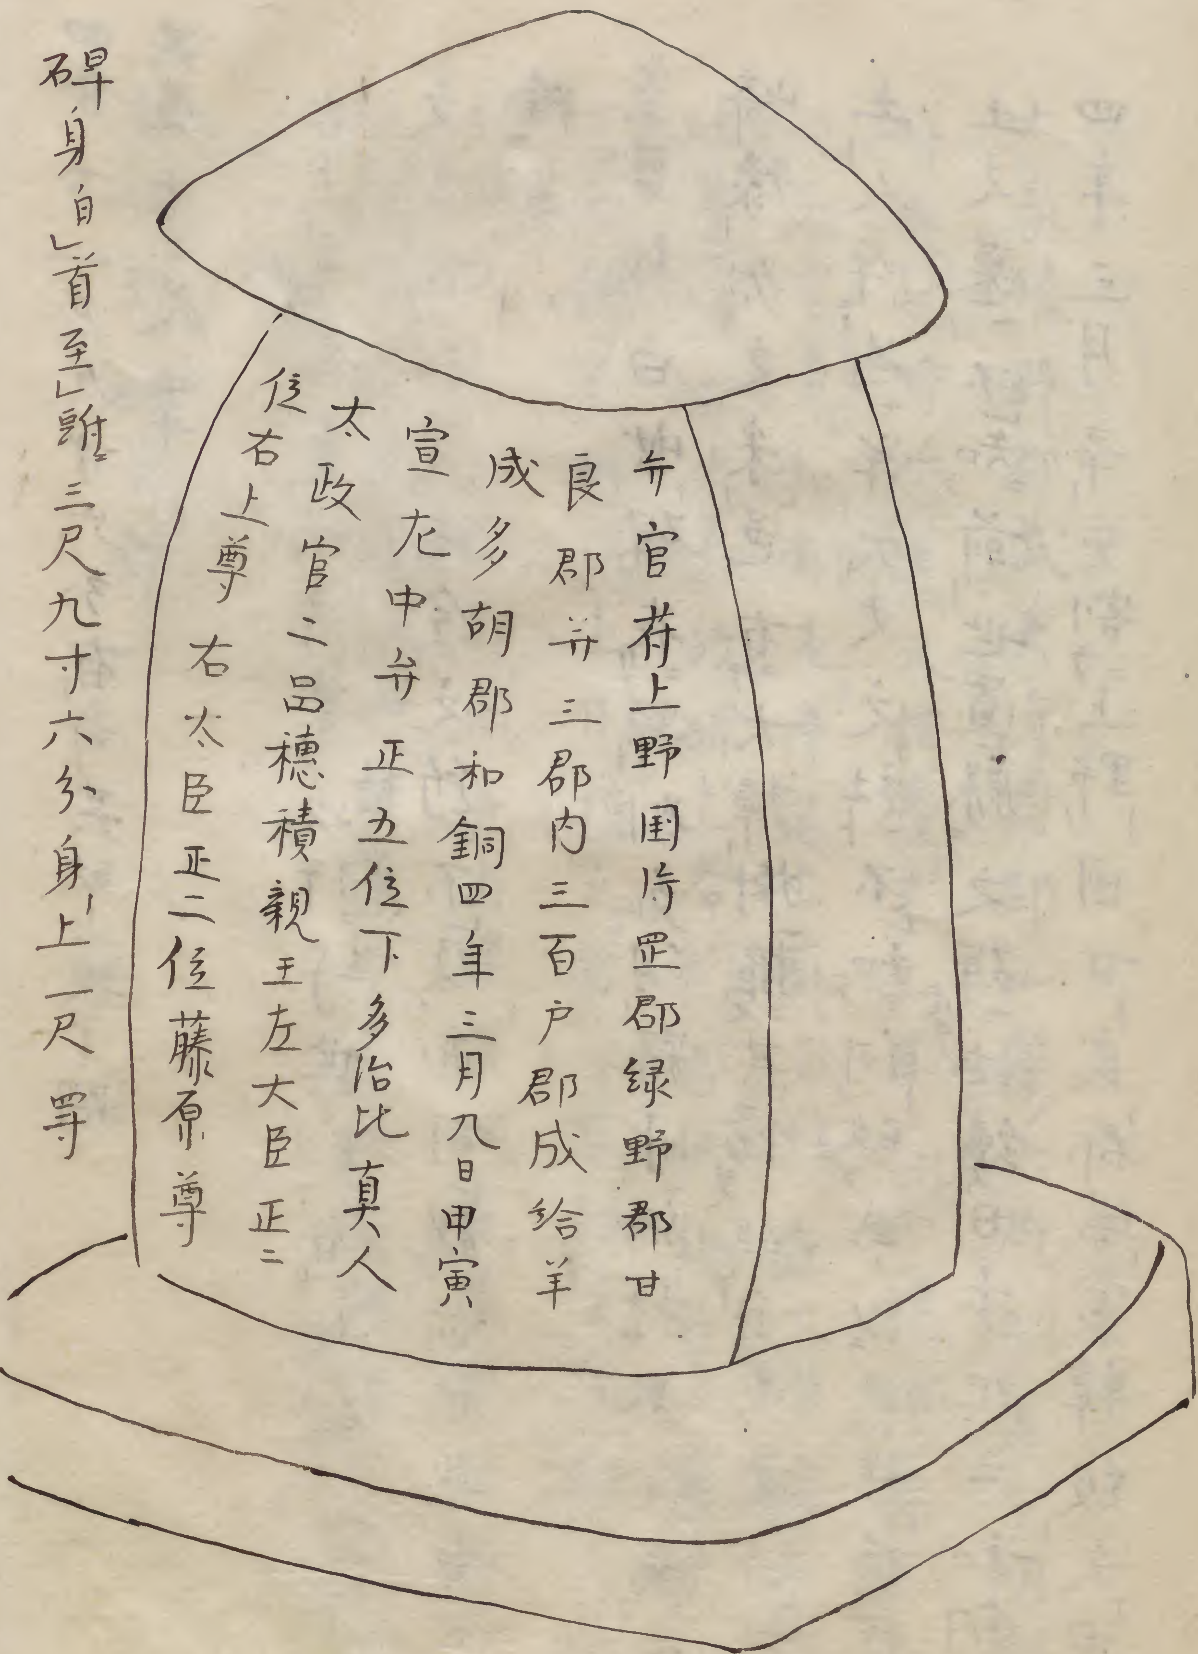 弁官苻上野国片罡郡緑野郡甘
良郡并三郡内三百户郡成給羊
成多胡郡和銅四年三月九日甲寅
宣左中弁正五位下多治比真人
太政官二品穂積親王左大臣正二
位右上尊右太臣正二位藤原尊
碑身自首至 三尺九寸六分身上一尺